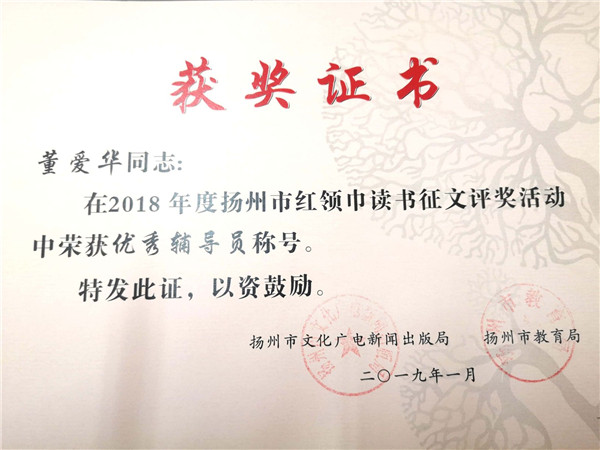 获奖证书
董爱华同志:
在2018年度扬州市红领巾读书征文评奖活动
中荣获优秀辅导员称号。
特发此证，以资鼓励。
扬州市文化广电新闻出版局 扬州市教育局
二〇一九年一月